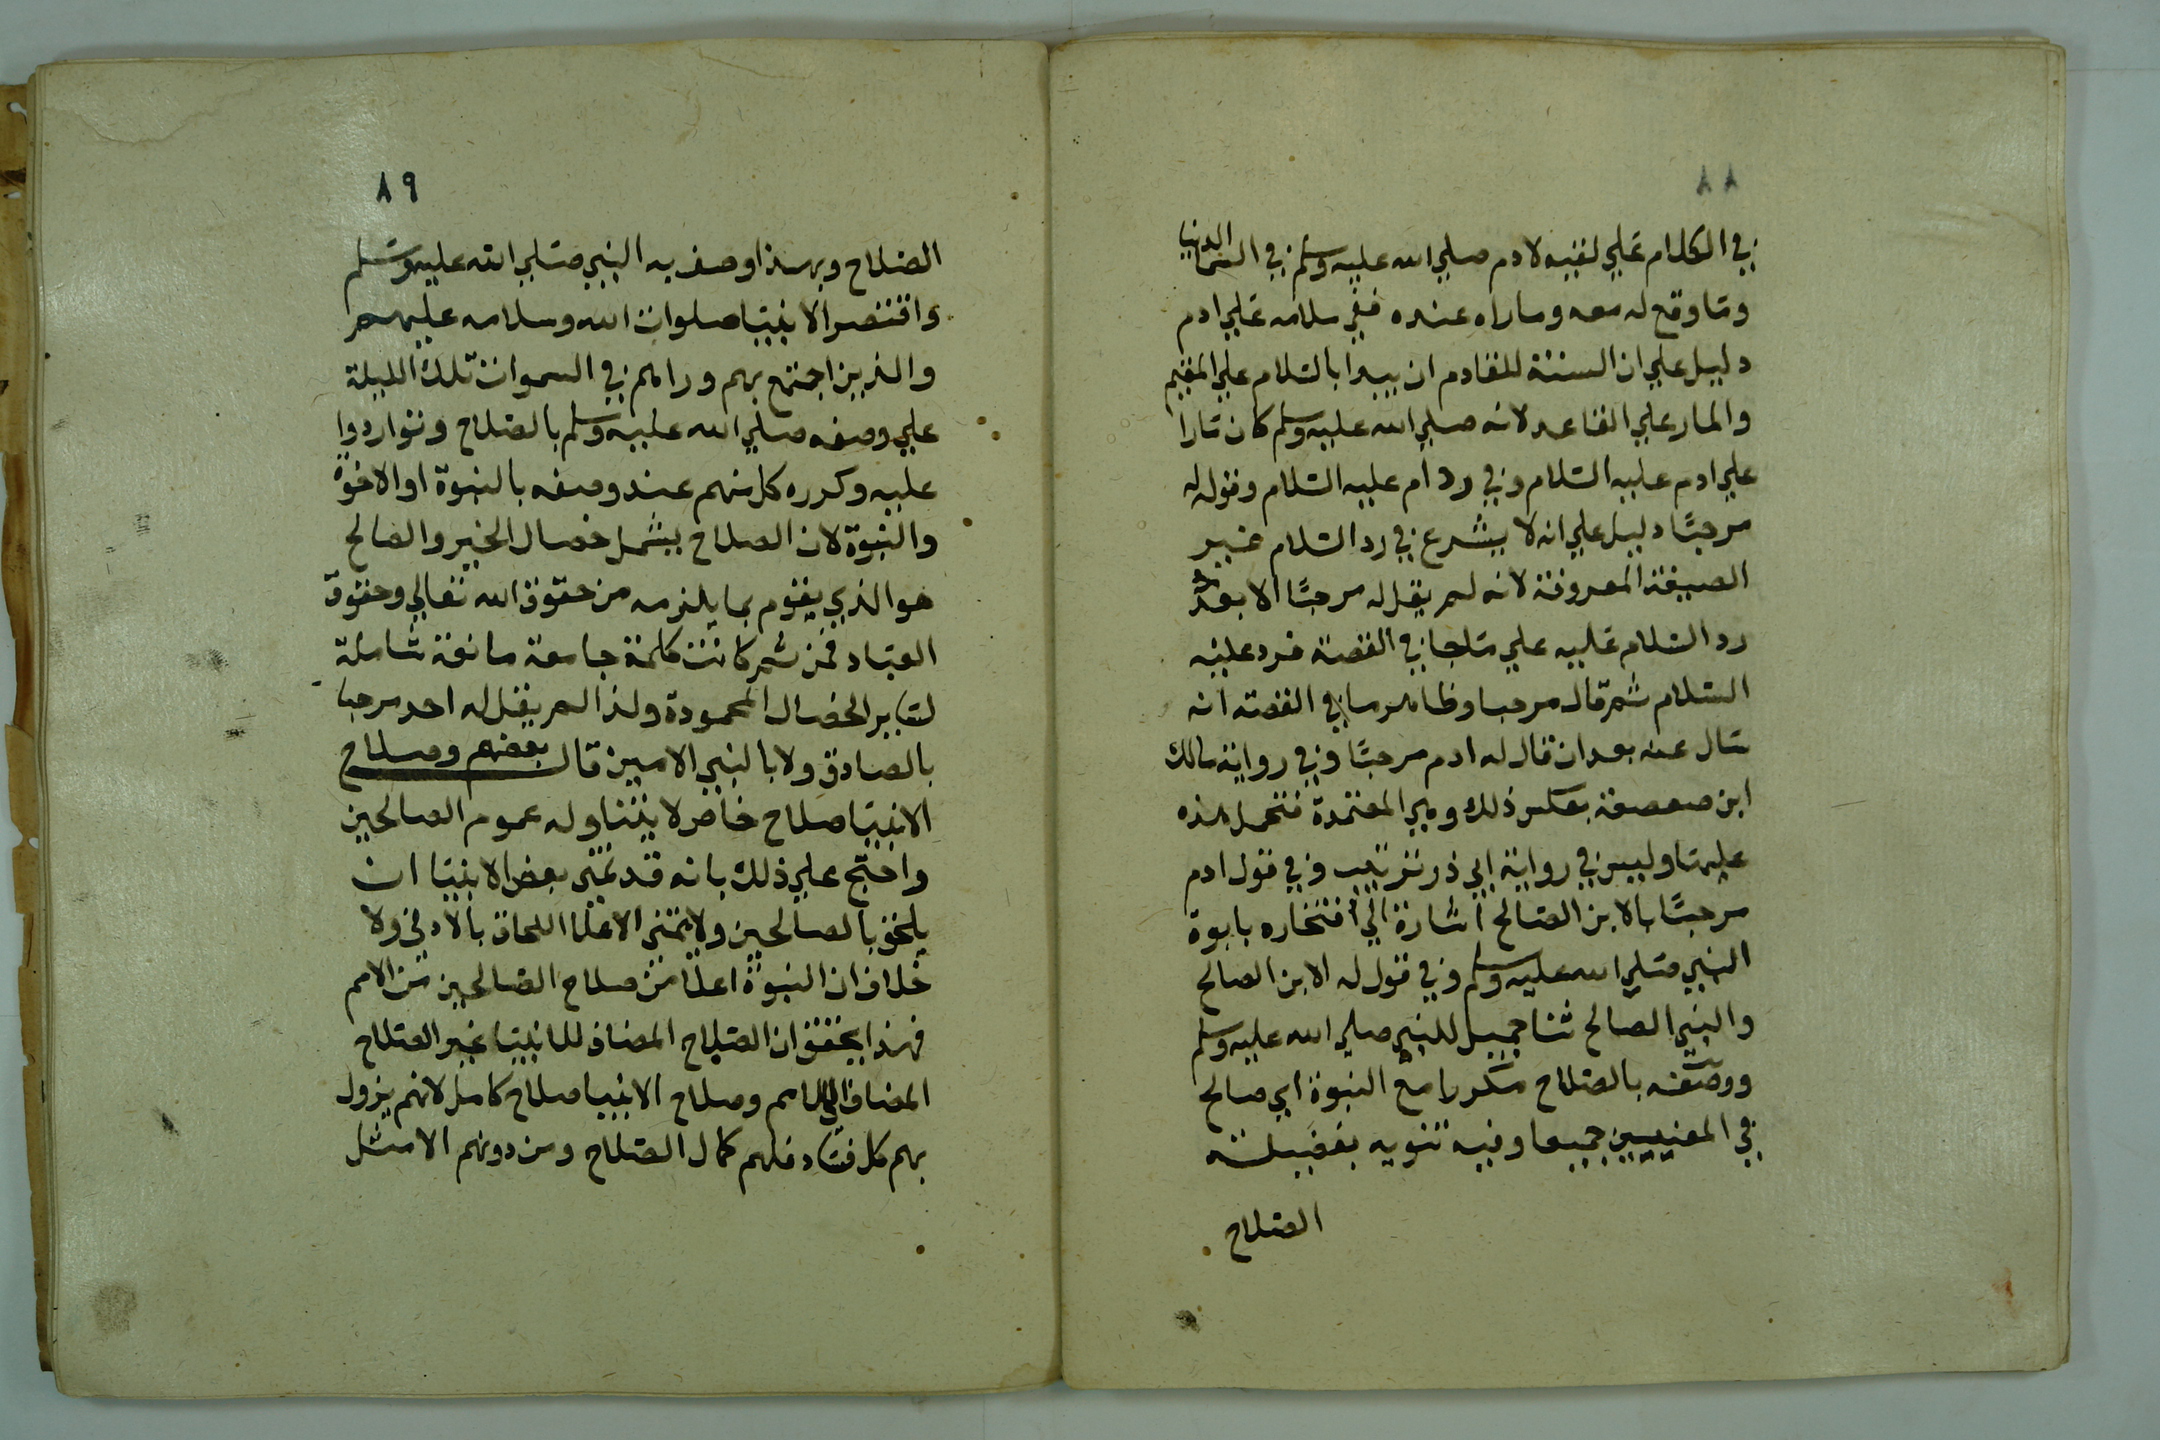 ٨٨
في الكلام علي لقيه لادم صلي الله عليه وسلم في السما الدنيا
وما وقع له معه وما راه عنده ففي سلامه علي ادم
دليل علي ان السنة للقادم ان يبدا بالسلام علي المقيم
والمار علي القاعد لانه صلي الله عليه وسلم كان مارا
علي ادم عليه السلام وفي رد ادم عليه السلام وقوله له
مرحبًا دليل علي انه لا يشرع في رد السلام غير
الصيغة المعروفة لانه لم يقل له مرحبًا الا بعد
رد السلام عليه علي ما جا في القصة فرد عليه
السلام ثم قال مرحبا وظاهر ما في القصة انه
سال عنه بعد ان قال له ادم مرحبًا وفي رواية مالك
ابن صعصعة بعكس ذلك وهي المعتمدة فتحمل هذه
عليها وليس في رواية ابي ذر ترتيب وفي قول ادم
مرحبًا بالابن الصالح اشارة الي افتخاره بابوة
النبي صلي الله عليه وسلم وفي قول له الابن الصالح
والنبي الصالح ثنا جميل للنبي صلي الله عليه وسلم
ووصفه بالصلاح مكررا مع النبوة اي صالح
في المعنيين جميعا وفيه تنويه بفضيلة
الصلاح
٨٩
الصلاح وبهذا وصف به النبي صلي الله عليه وسلم
واقتصر الانبيا صلوات الله وسلامه عليهم
والذين اجتمع بهم وراهم في السموات تلك الليلة
علي وصفه صلي الله عليه وسلم بالصلاح وتواردوا
عليه وكرره كل منهم عند وصفه بالنبوة او الاخوة
والنبوة لان الصلاح يشمل خصال الخير والصالح
هو الذي يقوم بما يلزمه من حقوق الله تعالي وحقوق
العباد فمن ثم كانت كلمة جامعة مانعة شاملة
لساير الخصال المحمودة ولذا لم يقل له احد مرحبا
بالصادق ولا بالنبي الامين قال بعضهم وصلاح
الانبيا صلاح خاص لا يتناوله عموم الصالحين
واحتج علي ذلك بانه قد تمني بعض الانبيا ان
يلحق بالصالحين ولا يتمني الاعلا اللحاق بالادني ولا
خلاف ان النبوة اعلا من صلاح الصالحين من الامم
فهذا يحقق ان الصلاح المضاف للانبيا غير الصلاح
المضاف الي الامم وصلاح الانبيا صلاح كامل لانهم يزول
بهم كل فساد فلهم كمال الصلاح ومن دونهم الامثل